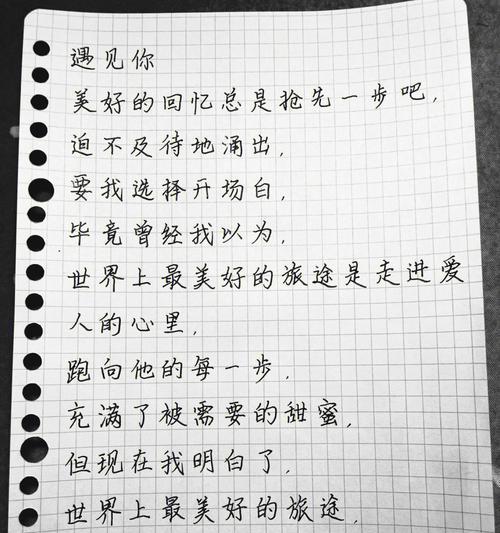 遇见你
美好的回忆总是抢先一步吧，
迫不及待地涌出，
要我选择开场白，
毕竟曾经我以为，
世界上最美好的旅途是走进爱
人的心里，
跑向他的每一步，
充满了被需要的甜蜜，
但现在我明白了，
世界上最美好的旅途，